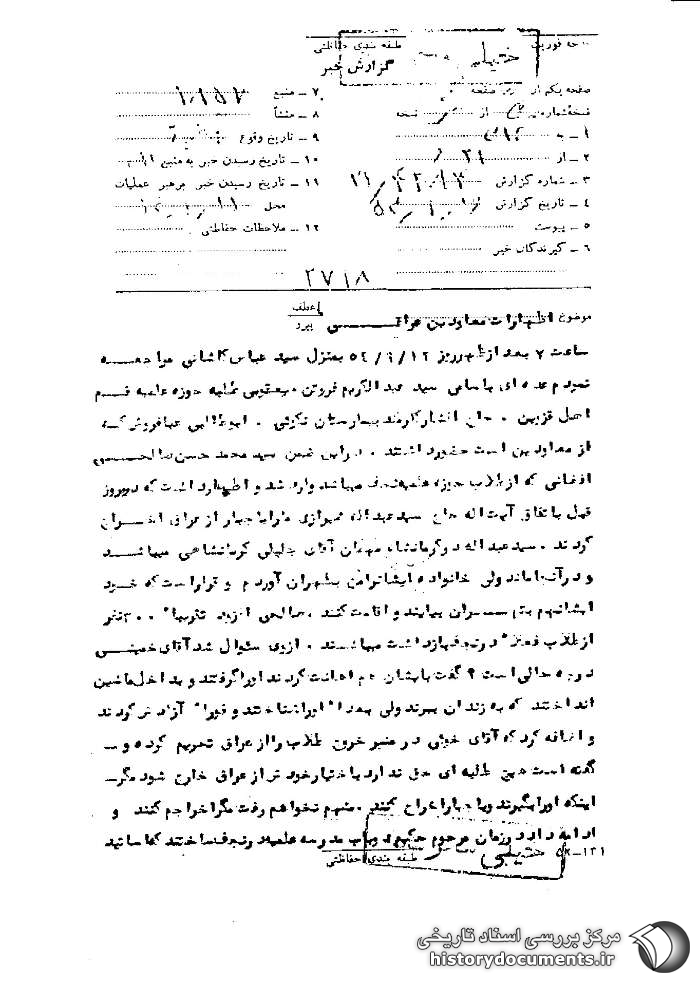 طبقه بندی حفاظتی
گزارش خبر
صفحه یکم از صفحه
نسخه شماره از نسخه
۱ - به
۲ - از
۳ - شماره گزارش
۴ - تاریخ گزارش
۵ - پیوست
۶ - گیرندگان خبر
۷ - منبع
۸ - منشأ
۹ - تاریخ وقوع
۱۰ - تاریخ رسیدن خبر به منبع
۱۱ - تاریخ رسیدن خبر برهبر عملیات
محل
۱۲ - ملاحظات حفاظتی
۲۷۱۸
موضوع اظهارات معاودین عراقی
عطف
پیرو
ساعت ۷ بعد از ظهر روز بمنزل سید عباس کاشانی مراجعه
نمودم عده ای باسامی سید عبدالکریم فروتن طلبه حوزه علمیه قم
اهل قزوین . حاج افشار کارمند بیمارستان . ابوطالبی عبافروش که
از معاودین است حضور داشتند . در این ضمن سید محمد حسن صالحی
افغانی که از طلاب حوزه علمیه نجف میباشد وارد شد و اظهار داشت که دیروز
قبل باتفاق آیت اله حاج سید عبداله شیرازی ما را باجبار از عراق اخراج
کردند . سید عبداله در کرمانشاه مهمان آقای جلیلی کرمانشاهی میباشد
و در آنجا ماند ولی خانواده ایشان را من بطهران آوردم و قرار است که خود
ایشانهم بیایند و اقامت کنند . صالحی افزود تقریبا ۳۰۰ نفر
از طلاب فعلا در نجف بازداشت میباشند . از وی سئوال شد آقای خمینی
در چه حالی است ؟ گفت بایشان هم اهانت کردند او را گرفتند و بداخل ماشین
انداختند که به زندان ببرند ولی بعدا او را شناختند و فورا آزادش کردند
و اضافه کرد که آقای خوئی در منبر خروج طلاب را از عراق تحریم کرده و
گفته است هیچ طلبه ای حق ندارد باختیار خودش از عراق خارج شود مگر
اینکه او را بگیرند و باجبار اخراج کنند . منهم نخواهم رفت مگر اخراجم کنند و
ادامه داد در زمان مرحوم حکیم مدرسه علمیه در نجف ساختند که اساتید
طبقه بندی حفاظتی
مرکز بررسی اسناد تاریخی
historydocuments.ir